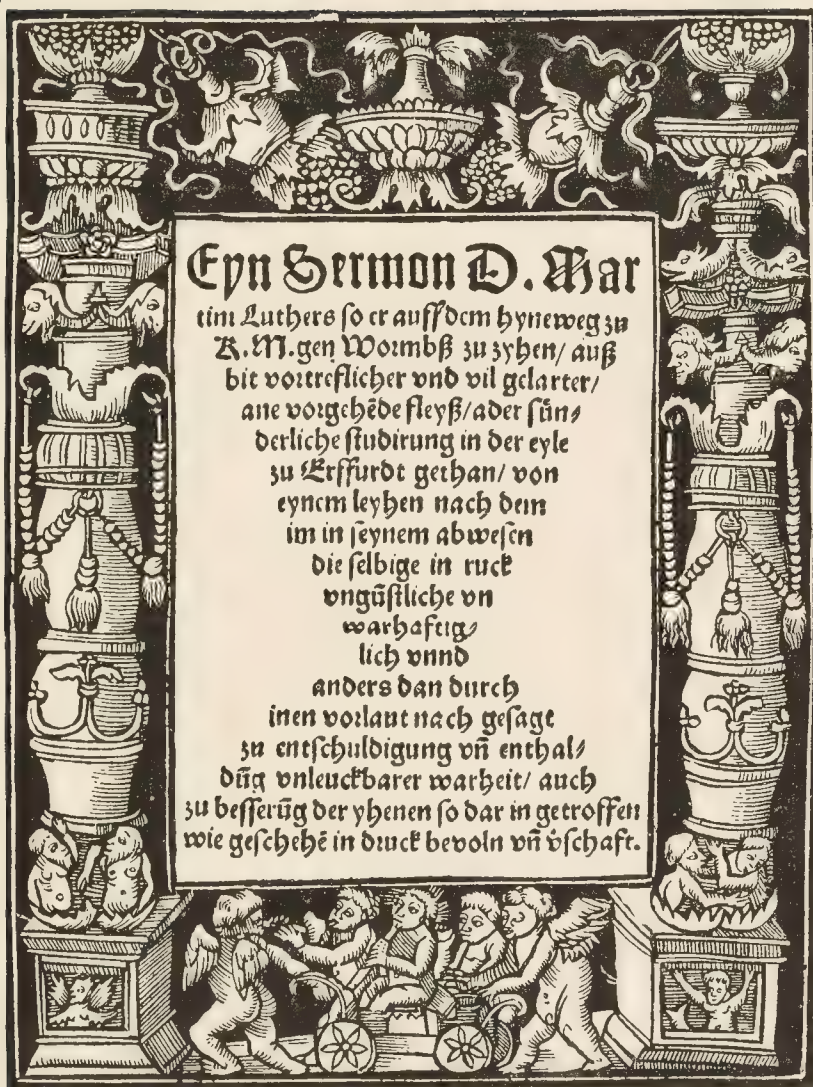 Eyn Sermon D. Mar
tini Luthers so er auff dem hyneweg zu
K. M. gen Wormbß zu zyhen/ auß
bit vortreflicher vnd vil gelarter/
ane vorgehēde fleyß/ ader sün⸗
derliche studirung in der eyle
zu Erffurdt gethan/ von
eynem leyhen nach dem
im in seynem abwesen
die selbige in ruck
vngūstliche vn
warhaftig⸗
lich vnnd
anders dan durch
inen vorlaut nach gesagt
zu entschuldigung vn̄ enthal⸗
dūg vnleuckbarer warheit/ auch
zu besserūg der yhenen so dar in getroffen
wie geschehē in druck bevoln vn̄ v̄schaft.